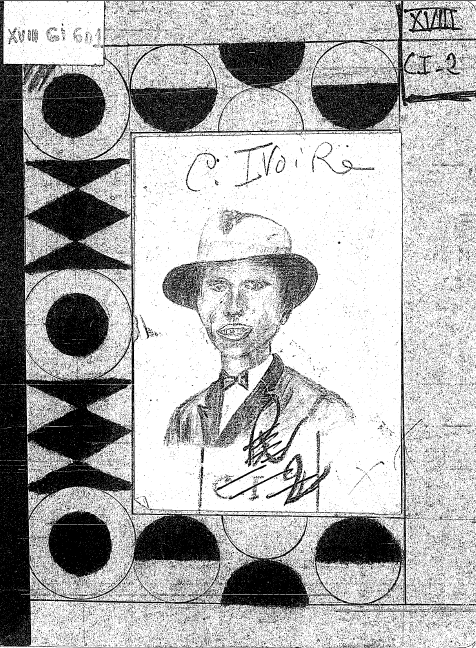 XVIII Gi 6n1
XVIII
CI-2
C. IVoiRe
CI-2